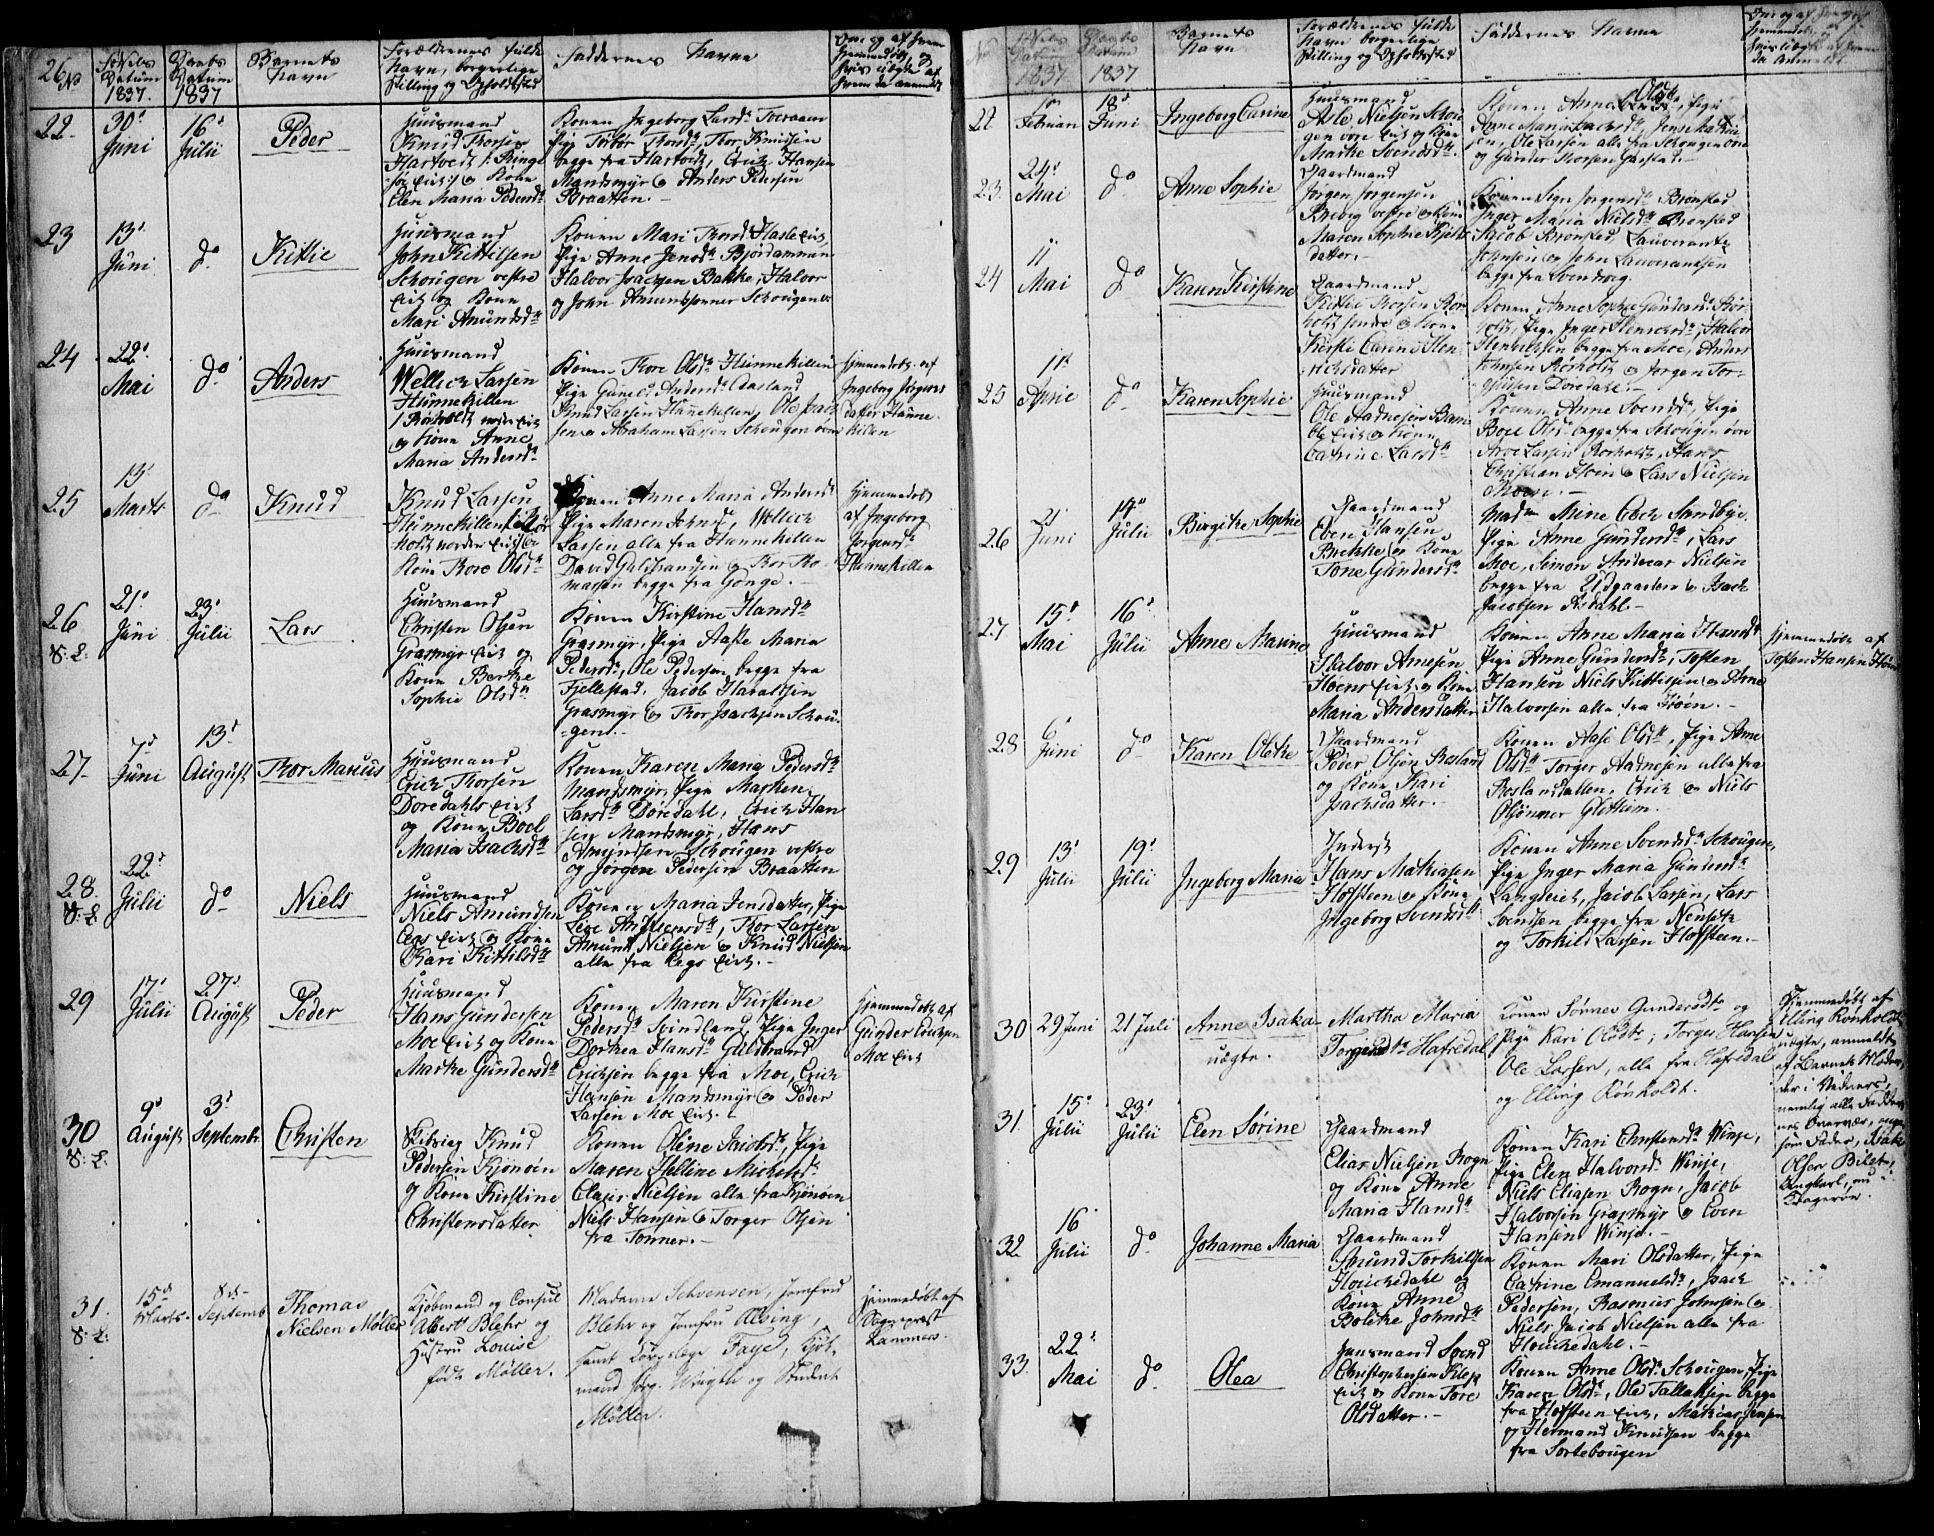 26
No
Fødsels Datum 1837.
Daabs Datum 1837
Barnets Navn
Forældrenes fulde
Navn, borgerlige
Stilling og Opholdssted
Faddernes Navne
22.
30te
Juni
16de
Julii
Peder
Huusmand
Knud Thorsen
Hartvedt
Eie og Kone
Elen Maria Pedersdr
Konen Ingeborg Larsdr Toeraaen
Pige Torbor Thorsdr, Thor Knudsen
begge fra Hartvedt, Erich Hansen
Mandsmyr og Anders Pedersen
Braatten.
23
13de
Juni
do
Kittil
Huusmand
John Kittilsen
Schougen vestre
Eie og Kone
Mari Amundsdr
Konen Mari Thorsdr Hasle Eie,
Pige Anne Jensdr Bjordammen
Halvor Isacsen Bakke, Halvor
og John Amundsønner Schougen v.
24
22de
Mai
do
Anders
Huusmand
Wellich Larsen
Hunnekillen
Rørholdt nordre Eie
og Kone Anne
Maria Andersdr
Konen Thore Olsdr Hunnekillen
Pige Gunild Andersdr Aasland
Knud Larsen Hunnekillen, Ole Isach-
sen og Abraham Larsen Schougen øvre
Hjemmedøbt af
Ingeborg Jørgens
datter Hunne-
killen
25
13de
Marts
do
Knud
Knud Larsen
Hunnekillen Rør-
holdt nordre Eie og
Kone Thore Olsdr
Konen Anne Maria Andersdr
Pige Maren Johnsdr, Wellich
Larsen alle fra Hunnekillen
David Guldbrandsen og Thor Tho-
massen begge fra Gonge.
Hjemmedøbt
af Ingeborg
Jørgensdr
Hunnekillen
26
V: L:
21de
Juni
23de
Julii
Lars
Huusmand
Christen Olsen
Grasmyr Eie og
Kone Berthe
Sophie Olsdr
Konen Kirstine Hansdr
Grasmyr, Pige Aaste Maria
Pedersdr, Ole Pedersen begge fra
Fjellestad, Jacob Haraldsen
Grasmyr og Thor Isachsen Schou-
gen.
27
7de
Juni
13de
August
Thor Marius
Huusmand
Erich Thorsen
Doredahls Eie
og Kone Boel
Maria Isachsdr
Konen Karen Maria Pedersdr
Mandsmyr, Pige Marthen
Larsdr Doredahl, Erich Han
sen Mandsmyr, Hans
Amundsen Schougen vestre
og Jørgen Pedersen Braatten
28.
V: L:
22de
Julii
do
Niels
Huusmand
Niels Amundsen
Eegs Eie og Kone
Kari Kittilsdr
Konen Maria Jensdatter, Pige
Thor Larsen
Amund Nielsen og Knud Nielsen
alle fra Eegs Eie.
29
17de
Julii
27de
August
Peder
Huusmand
Hans Gundersen
Moe Eie og Kone
Marthe Gundersdr
Konen Maren Kirstine
Pedersdr Svindland, Pige Inger
Dorthea Hansdr Guldbrand
Erichsen begge fra Moe, Erich
Hansen Mandsmyr og Peder
Larsen Moe Eie.
Hjemmedøbt af
Gunder Erichsen
Moe Eie
30
V: L:
9de
August
3de
Septembr
Christen
Knud
Pedersen Kjonøen
og Kone Kirstine
Christensdatter
Konen Oline Jacobsdr, Pige
Maren Helline Michelsdr
Claus Nielsen alle fra Kjonøen
Niels Hansen og Torger Olsen
fra Tonner.
31.
V: L:
15de
Marts
8de
Septemb
Thomas
Nielsen Møller
Kjøbmand og Consul
Albert Blehr og
Hustru Louise
født Møller.
Madame Schvensen, Jomfru
Blehr og Jomfru Alving,
samt Corpslæge Faye, Kjøb-
mand Jørg. Wright og Student
Møller.
Hjemmedøbt af
Sognepræst
Lammers.
No
1837
1837
Barnets
Navn
Forældrenes fulde
Navn borgerlige
Stilling og Opholdssted
Faddernes Navne
22
1ste
Februari
18de
Juni
Ingeborg Carine
Huusmand
Asle Nielsen Schou-
gen øvre Eie og Kone
Marthe Svendsdr.
Konen Anne Olsdr, Pige
Anne Maria Isachsdr, Jens Isach-
sen, Ole Larsen alle fra Schougen øvre
og Gunder Thorsen
23
24de
Mai
do
Anne Sophie
Gaardmand
Jørgen Jørgensen
Brevig vestre og Kone
Maren Sophie
datter.
Konen Siri Jørgensdr Brønsted
Inger Maria Nielsdr Brønsted
Jacob Brønsted, Lauverants
Johnsen og John Lauverantsen
begge fra Svenborg.
24
11
Mai
do
Karen Kirstine
Gaardmand
Kittil Thorsen Rør-
holdt søndre og Kone
Kirsti Carine Hen-
richsdatter
Konen Anne Sophie Gundersdr Rør-
holdt, Pige Inger Henrichsdr, Halvor
Henrichsen begge fra Moe, Anders
Johnsen Rørholdt og Jørgen Tor-
gersen Doredahl.
25
11te
April
do
Karen Sophie
Huusmand
Ole Aadnesen Bam-
ble Eie og Kone
Cathrine Larsdr
Konen Anne Svendsdr, Pige
Boel Olsdr begge fra Schougen øvre
Aroe Larsen Rørholdt, Hans
Christian Hoen og Lars Nielsen
26
21
Juni
14de
Julii
Birgithe Sophie
Gaardmand
Even Hansen
Brekke og Kone
Tone Gundersdr
Madm Mine Cock Sundbye
Pige Anne Gundersdr, Lars
Moe, Simon Andreas Nielsen
begge fra Udgaarden og Isach
Jacobsen Aasdahl.
27
15de
Mai
16de
Julii
Anne Marine
Huusmand
Halvor Arnesen
Hoens Eie og Kone
Maria Andersdatter
Konen Anne Maria Hansdr
Pige Anne Gundersdr, Tosten
Hansen Niels Kittilsen og Arne
Halvorsen alle fra Høen.
Hjemmedøbt af
Tosten Hansen Høen
28
6
Juni
do
Karen Olethe
Gaardmand
Peder Olsen Rosland
og Kone Kari
Isachsdatter.
Konen Aase Olsdr, Pige Anne
Olsdr Torger Aadnesen alle fra
Roslandsdalen, Erich og Niels
Olsønner Gjetheim.
29
13de
Julii
19de
Julii
Ingeborg Maria
Inderst
Hans Mathiasen
Hofsteen og Kone
Ingeborg Svendsdr
Konen Anne Svendsdr Schougen,
Pige Inger Maria Gundersdr
Langleiet, Jacob Larsen, Lars
Svendsen begge fra Nenseth
og Torkild Larsen Hofsteen.
30
29 Juni
21 Juli
Anne Isaka
uægte.
Martha Maria
Torgersdtr Hafredal
Konen Sønnev Gundersdtr og
Pige Kari Olsdtr; Torger Hansen
Ole Larsen, alle fra Hafredal
og Elling Rønholdt.
Hjemmedøbt af
Elling Rønholdt
uægte, anmeldt
af Barnets Moder,
der i Vidners,
nemlig alle Fadder-
nes Overvær, opgav
som Fader, Isak
Olsen Bilet,
Ungkarl, nu i
Kragerøe.
31.
15de
Julii
23de
Julii
Elen Sørine
Gaardmand
Elias Nielsen Rogn
og Kone Anne
Maria Hansdr
Konen Kari Christensdr Winje,
Pige Elen Halvorsdr Winje,
Niels Eliasen Rogn, Jacob
Halvorsen Grasmyr og Even
Hansen Winje.
32
16
Julii
do
Johanne Maria
Gaardmand
Amund Torkildsen
Houckedahl og
Kone Anne
Bolethe Johnsdr
Konen Mari Olsdatter, Pige
Cathrine Emanuelsdr, Isach
Pedersen, Rasmus Johnsen og
Niels Jacob Nielsen alle fra
Houckedahl.
33
22de
Mai
do
Olea
Huusmand Svend
Christophersen Kilen
Eie og Kone Tore
Olsdatter.
Konen Anne Olsdr Schougen, Pige
Karen Olsdr, Ole Tallaksen begge
fra Hofsteen Eie, Mathias Jensen
og Hermand Knudsen begge
fra Sortebougen